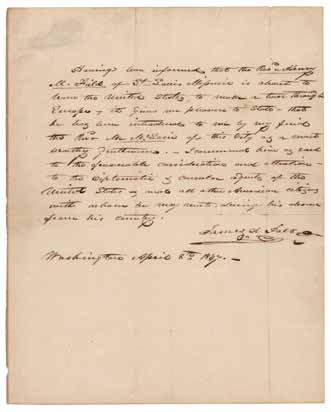 Having been informed that the Revd. Henry
M. Field of St. Louis Missouri is about to
leave the United States, to make a tour through
Europe, it gives me pleasure to state that
he has been introduced to me by my friend
the Revd. Mr. of this City as a most
worthy gentleman. I commend him as such
to the favorable consideration and attention
to the Diplomatic & consular agents of the
United States & and all other American citizens
with whom he may meet, during his absence
from his country.
James K. Polk
Washington April 8th 1847.